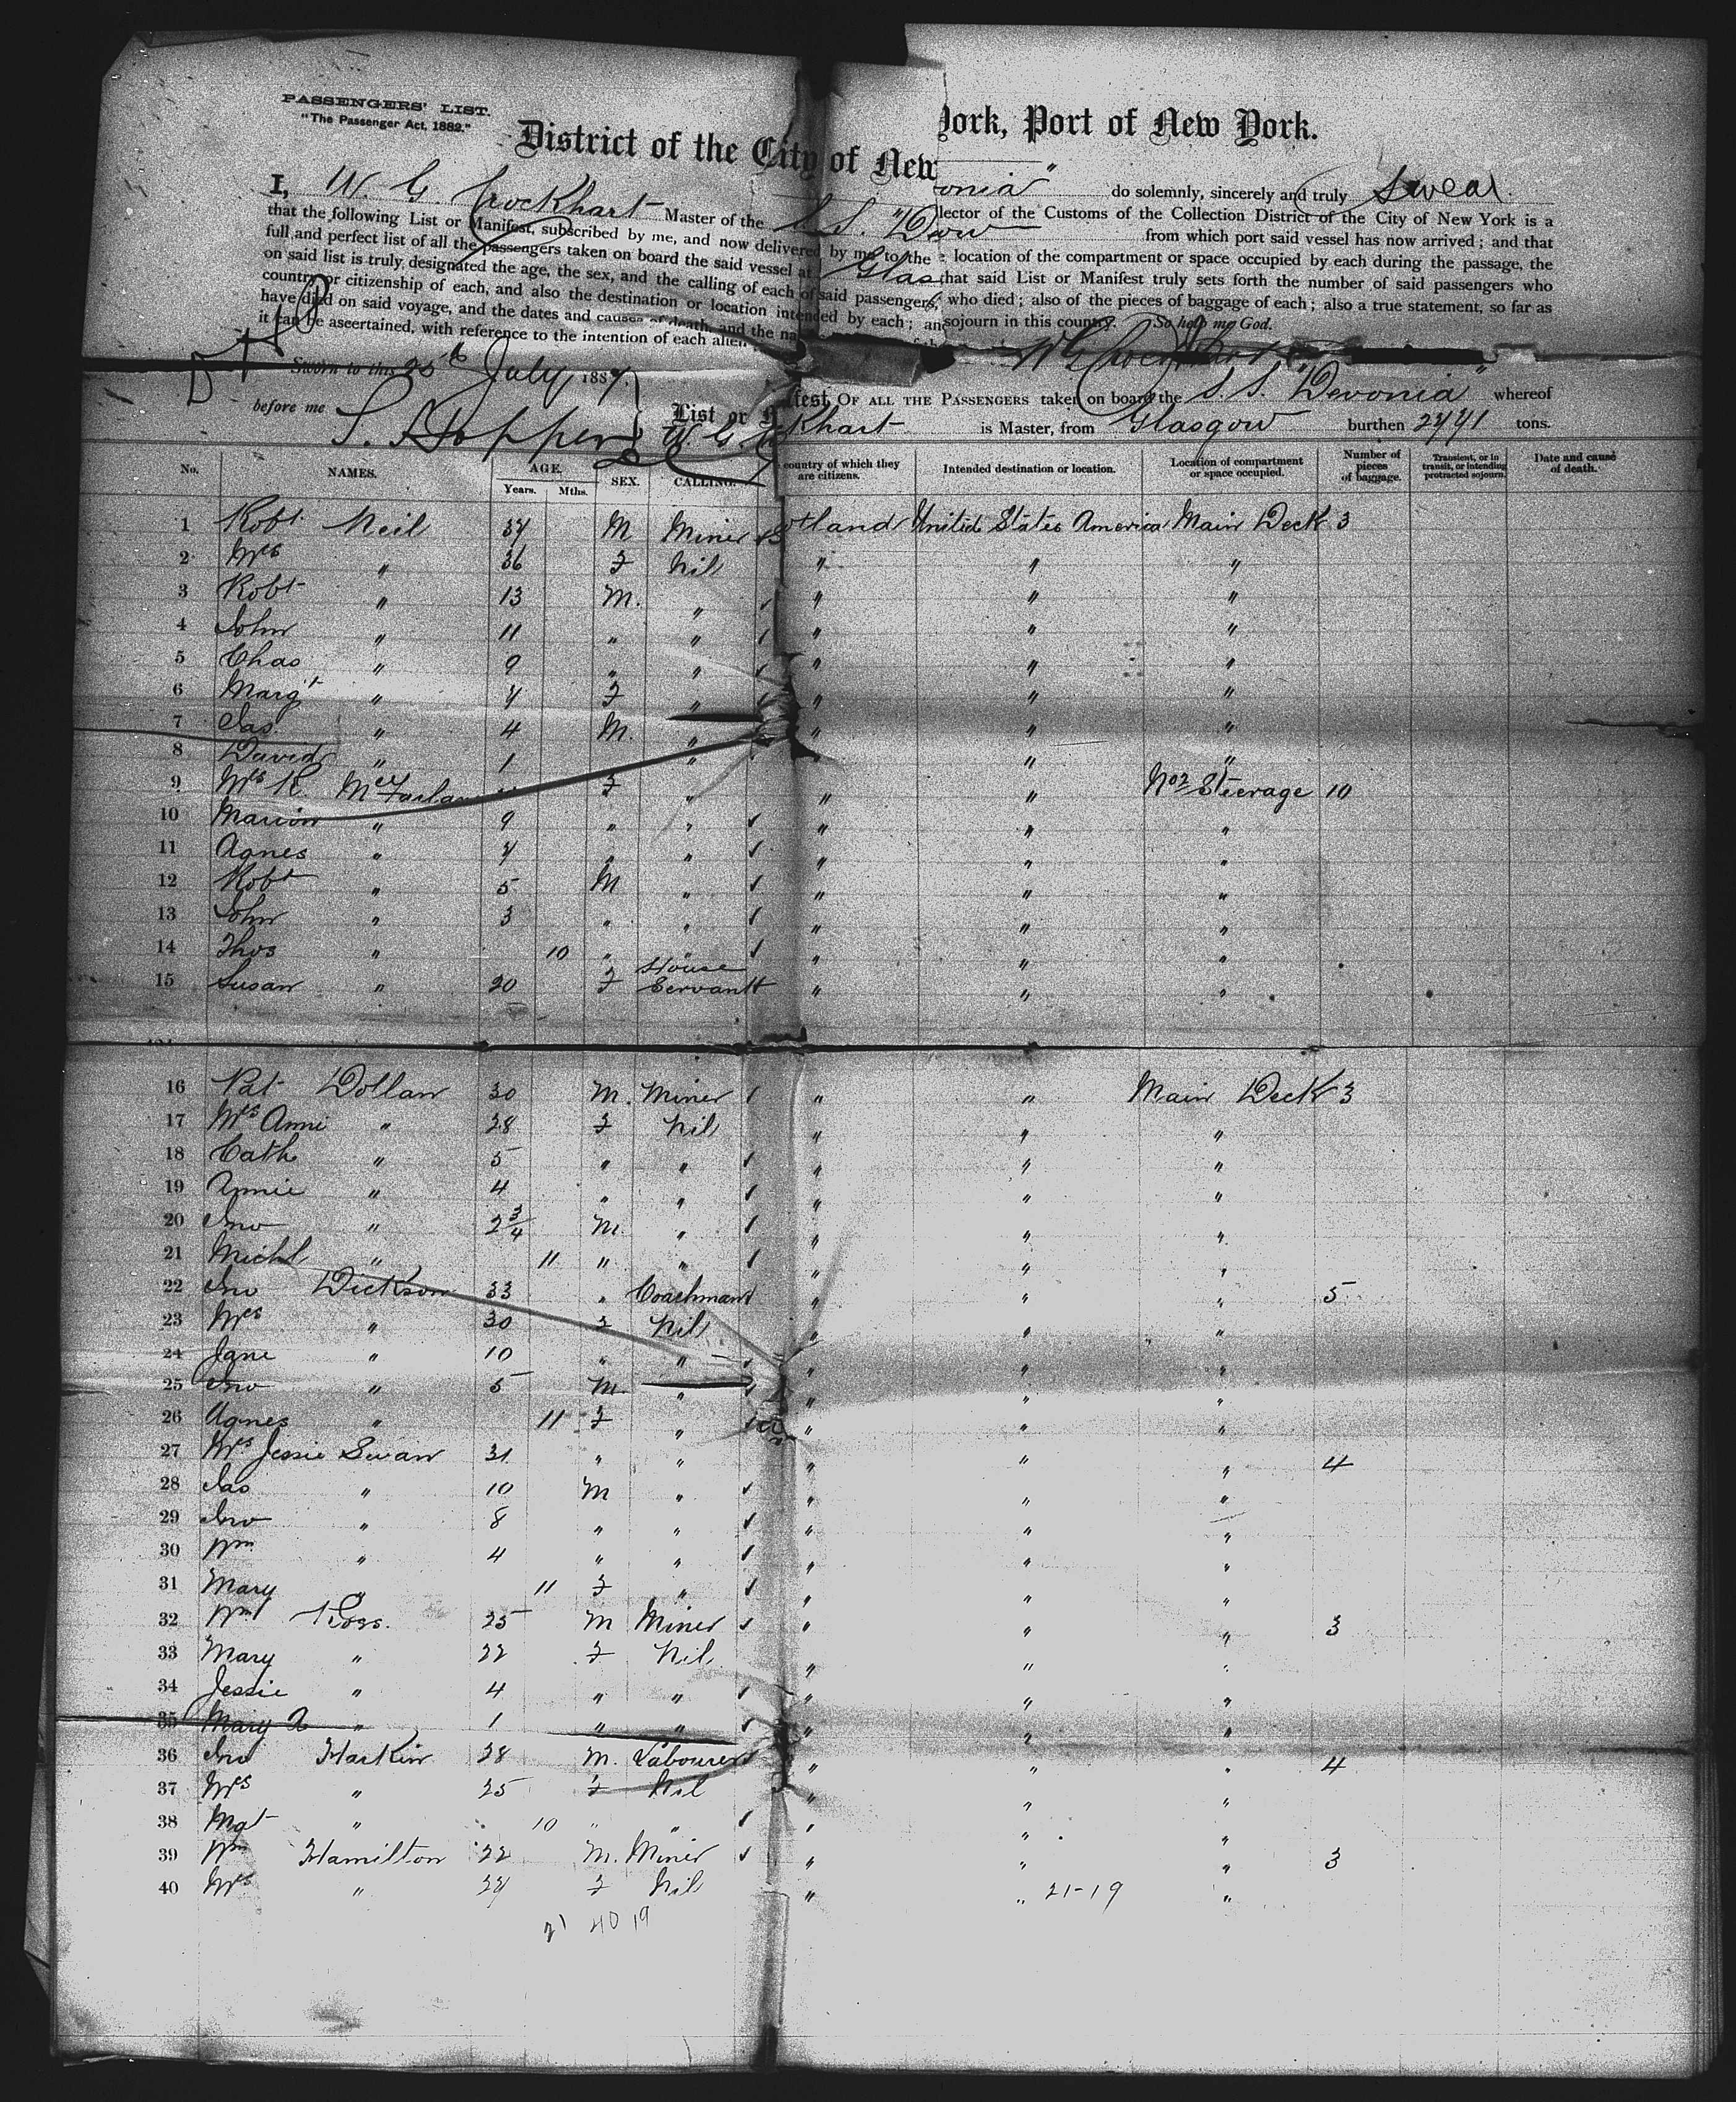 PASSENGERS' LIST.
"The Passenger Act, 1882."
District of the City of New York, Port of New York.
I, W. G. Crockhart Master of the S.S. "Devonia" do solemnly, sincerely and truly swear
that the following List or Manifest, subscribed by me, and now delivered by me to the Collector of the Customs of the Collection District of the City of New York is a
full and perfect list of all the passengers taken on board the said vessel at Glasgow from which port said vessel has now arrived; and that
on said list is truly designated the age, the sex, and the calling of each of said passengers, the location of the compartment or space occupied by each during the passage, the
country or citizenship of each, and also the destination or location intended by each; and that said List or Manifest truly sets forth the number of said passengers who
have died on said voyage, and the dates and causes of death, and the names who died; also of the pieces of baggage of each; also a true statement, so far as
it can be ascertained, with reference to the intention of each alien sojourn in this country. So help me God.
Sworn to this 25th July 1887
before me
List or Manifest OF ALL THE PASSENGERS taken on board the S.S. "Devonia" whereof
is Master, from Glasgow burthen tons.
No. NAMES. AGE. Years. Mths. SEX. CALLING. country of which they are citizens. Intended destination or location. Location of compartment or space occupied. Number of pieces of baggage. Transient, or in transit, or intending protracted sojourn. Date and cause of death.
1 Robt Neil 37 M Miner Scotland United States America Main Deck 3
2 Mrs " 36 F Nil " " "
3 Robt " 13 M. " " " "
4 John " 11 " " " " "
5 Chas " 9 " " " " "
6 Margt " 7 F " " " "
7 Jas " 4 M. " " " "
8 David " 1 " " " "
9 Mrs R. McFarlan F " " " No 2 Steerage 10
10 Marion " 9 " " " " "
11 Agnes " 7 " " " " "
12 Robt " 5 M " " " "
13 John " 3 " " " " "
14 Thos " 10 " " " " "
15 Susan " 20 F House Servant " " "
16 Pat Dollan 30 M. Miner " " Main Deck 3
17 Mrs Anni " 28 F Nil " " "
18 Cath " 5 " " " " "
19 Annie " 4 " " " " "
20 Jno " 2 3/4 M. " " " "
21 Michl " 11 " " " " "
22 Jno Dickson 33 " Coachman " " " 5
23 Mrs " 30 F Nil " " "
24 Jane " 10 " " " " "
25 Jno " 5 M. " " " "
26 Agnes " 11 F " " " "
27 Mrs Jessie Swan 31 " " " " " 4
28 Jas " 10 M " " " "
29 Jno " 8 " " " " "
30 Wm " 4 " " " " "
31 Mary " 11 F " " " "
32 Wm Ross. 25 M Miner " " " 3
33 Mary " 22 F Nil " " "
34 Jessie " 4 " " " " "
35 Mary A " 1 " " " " "
36 Jno Harkin 28 M. Labourer " " " 4
37 Mrs " 25 F Nil " " "
38 Mgt " 10 " " " " "
39 Wm Hamilton 22 M. Miner " " " 3
40 Mrs " F Nil " " 21-19 "
21 40 19